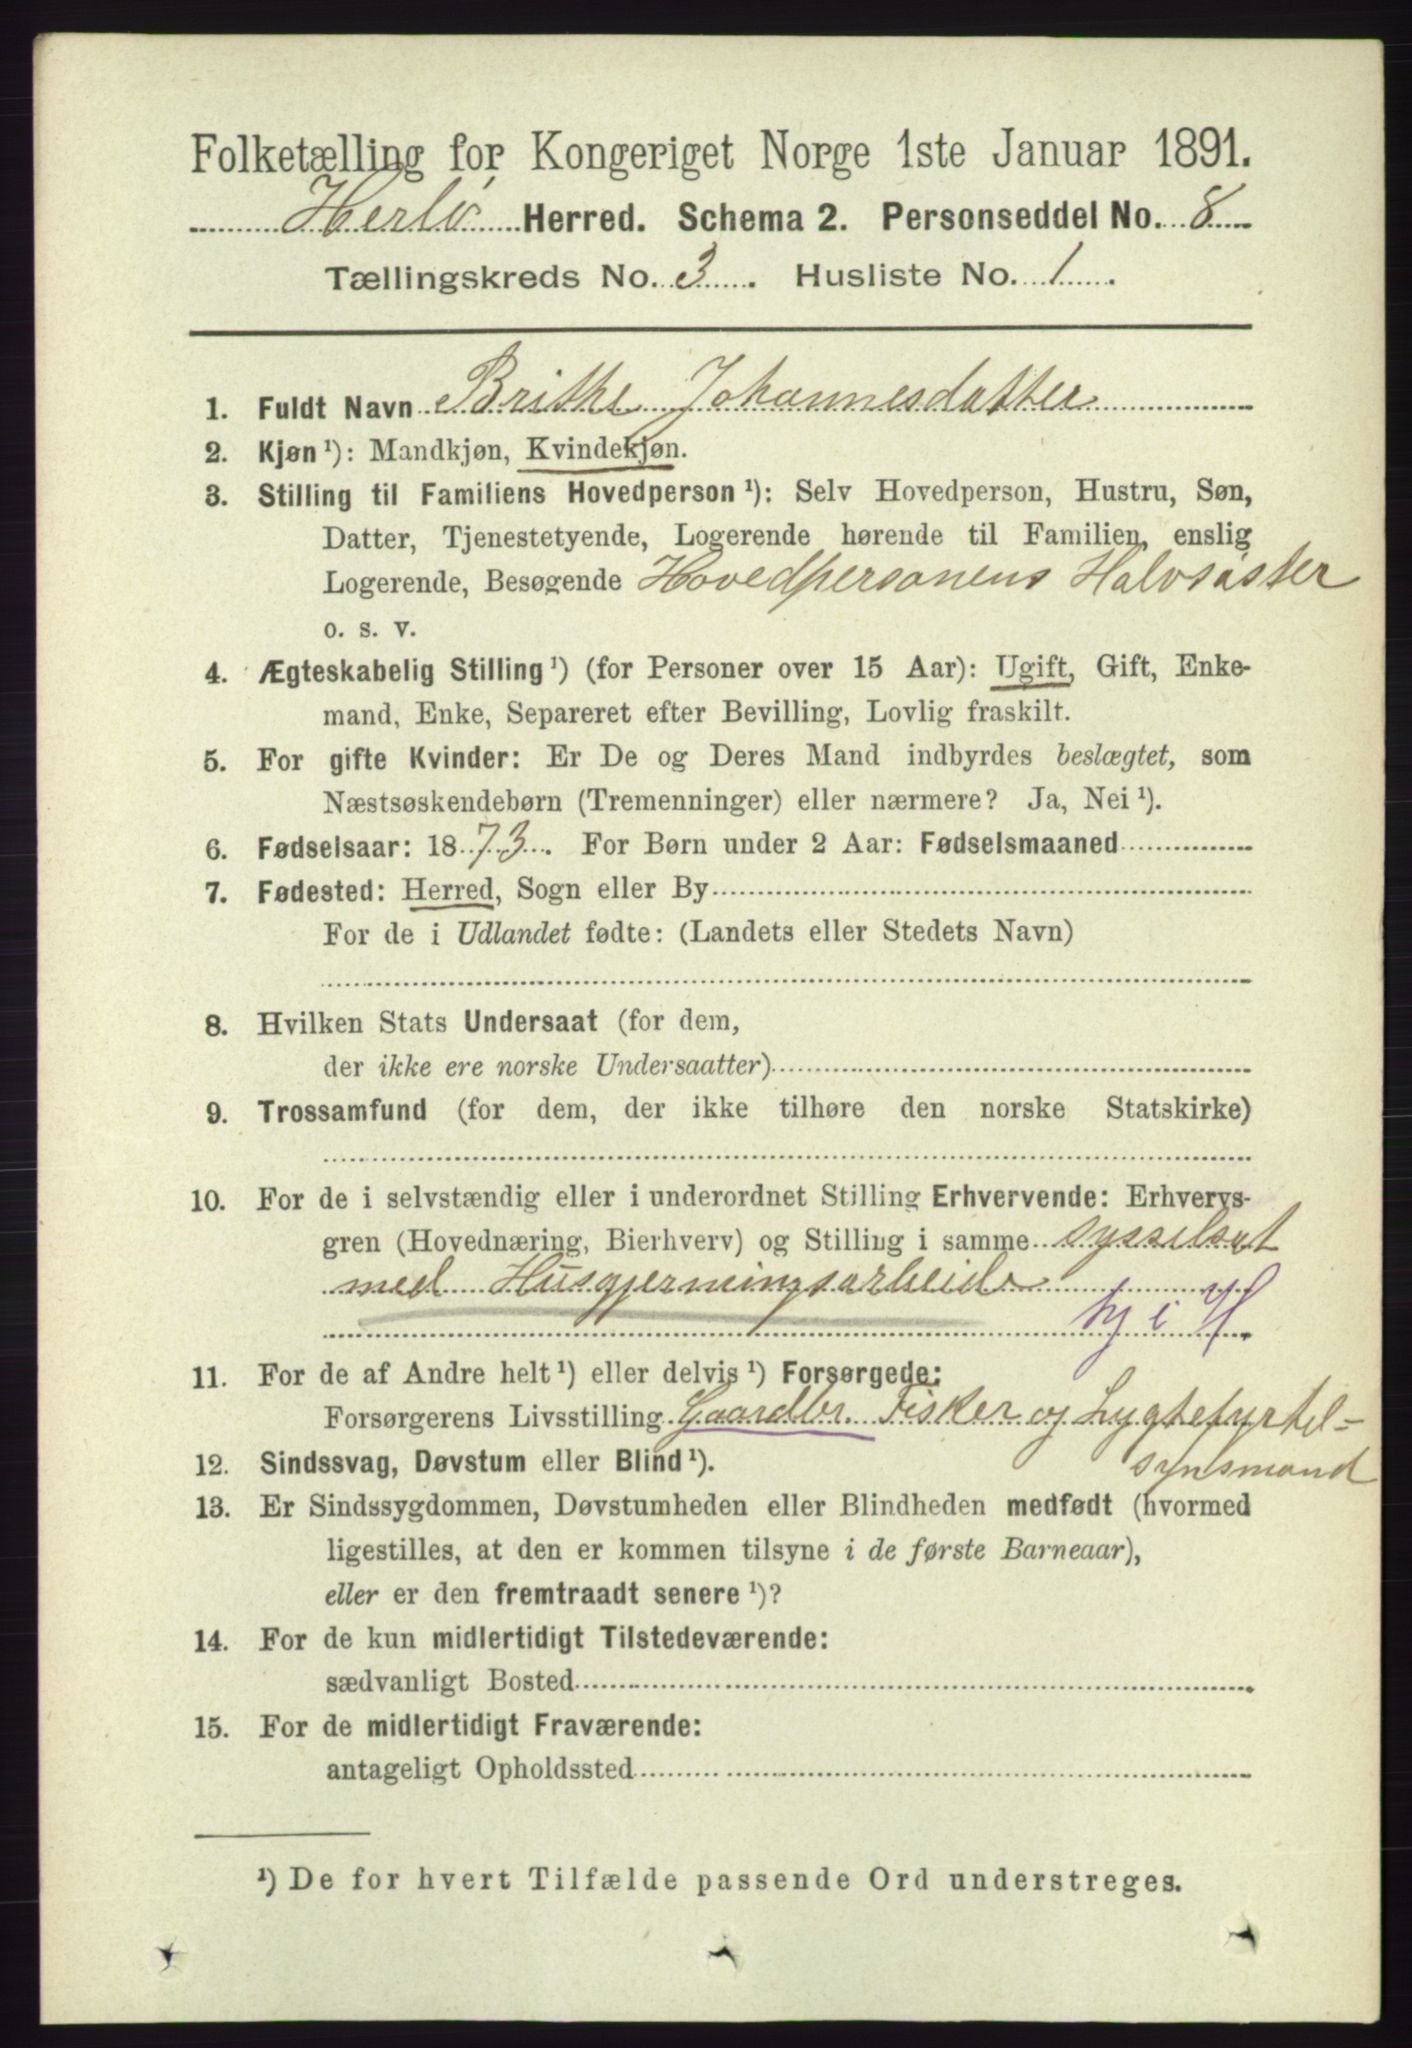 Folketælling for Kongeriget Norge 1ste Januar 1891.
Herlø Herred. Schema 2. Personseddel No. 8
Tællingskreds No. 3. Husliste No. 1.
1. Fuldt Navn Brithe Johannesdatter
2. Kjøn ¹): Mandkjøn, Kvindekjøn.
3. Stilling til Familiens Hovedperson ¹): Selv Hovedperson, Hustru, Søn,
Datter, Tjenestetyende, Logerende hørende til Familien, enslig
Logerende, Besøgende Hovedpersonens Halvsøster
o. s. v.
4. Ægteskabelig Stilling ¹) (for Personer over 15 Aar): Ugift, Gift, Enke-
mand, Enke, Separeret efter Bevilling, Lovlig fraskilt.
5. For gifte Kvinder: Er De og Deres Mand indbyrdes beslægtet, som
Næstsøskendebørn (Tremenninger) eller nærmere? Ja, Nei ¹).
6. Fødselsaar: 1873. For Børn under 2 Aar: Fødselsmaaned
7. Fødested: Herred, Sogn eller By
For de i Udlandet fødte: (Landets eller Stedets Navn)
8. Hvilken Stats Undersaat (for dem,
der ikke ere norske Undersaatter)
9. Trossamfund (for dem, der ikke tilhøre den norske Statskirke)
10. For de i selvstændig eller i underordnet Stilling Erhvervende: Erhvervs-
gren (Hovednæring, Bierhverv) og Stilling i samme sysselsat
med Husgjerningsarbeide
tj i H.
11. For de af Andre helt ¹) eller delvis ¹) Forsørgede:
Forsørgerens Livsstilling Gaardbr. Fisker og Lygtefyrtel-
synsmand
12. Sindssvag, Døvstum eller Blind ¹).
13. Er Sindssygdommen, Døvstumheden eller Blindheden medfødt (hvormed
ligestilles, at den er kommen tilsyne i de første Barneaar),
eller er den fremtraadt senere ¹)?
14. For de kun midlertidigt Tilstedeværende:
sædvanligt Bosted
15. For de midlertidigt Fraværende:
antageligt Opholdssted
¹) De for hvert Tilfælde passende Ord understreges.